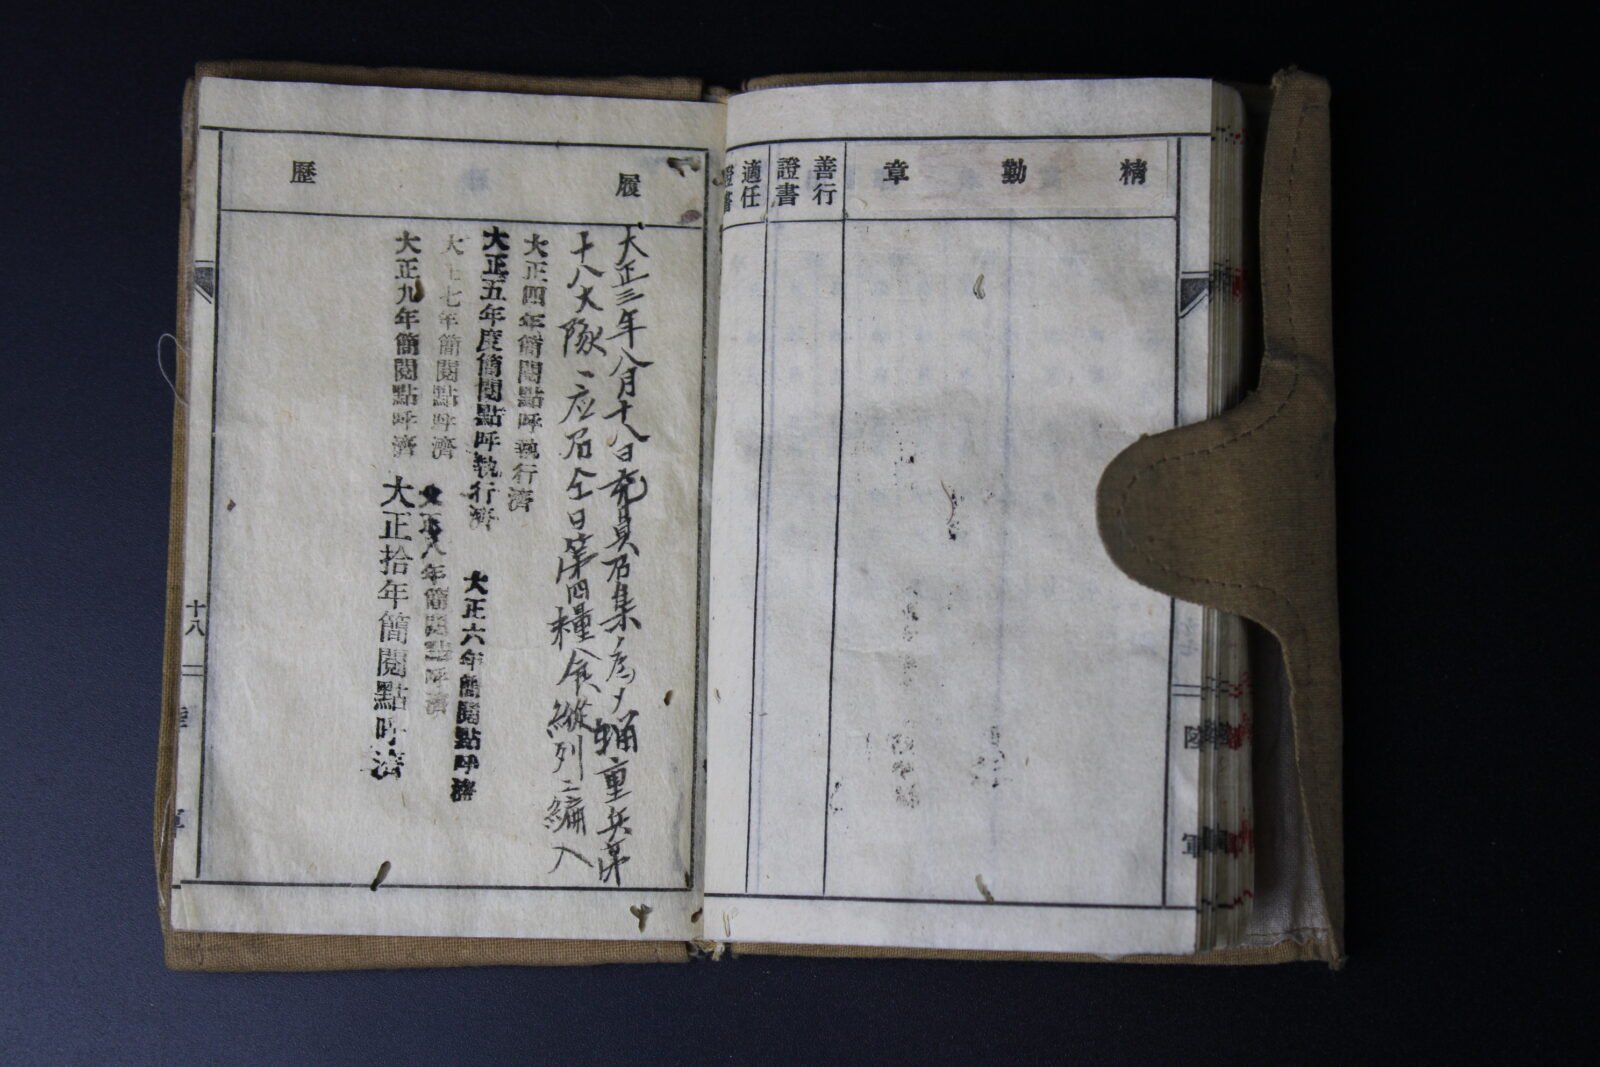 精勤章
善行證書
適任證書
履歷
大正三年八月十八日充員召集ノ為メ輜重兵第
十八大隊ヘ応召仝日第四糧食縱列ニ編入
大正四年簡閲點呼執行濟
大正五年度簡閲點呼執行濟
大正六年簡閲點呼濟
大正七年簡閲點呼濟
大正八年簡閲點呼濟
大正九年簡閲點呼濟
大正拾年簡閲點呼濟
十八
陸軍